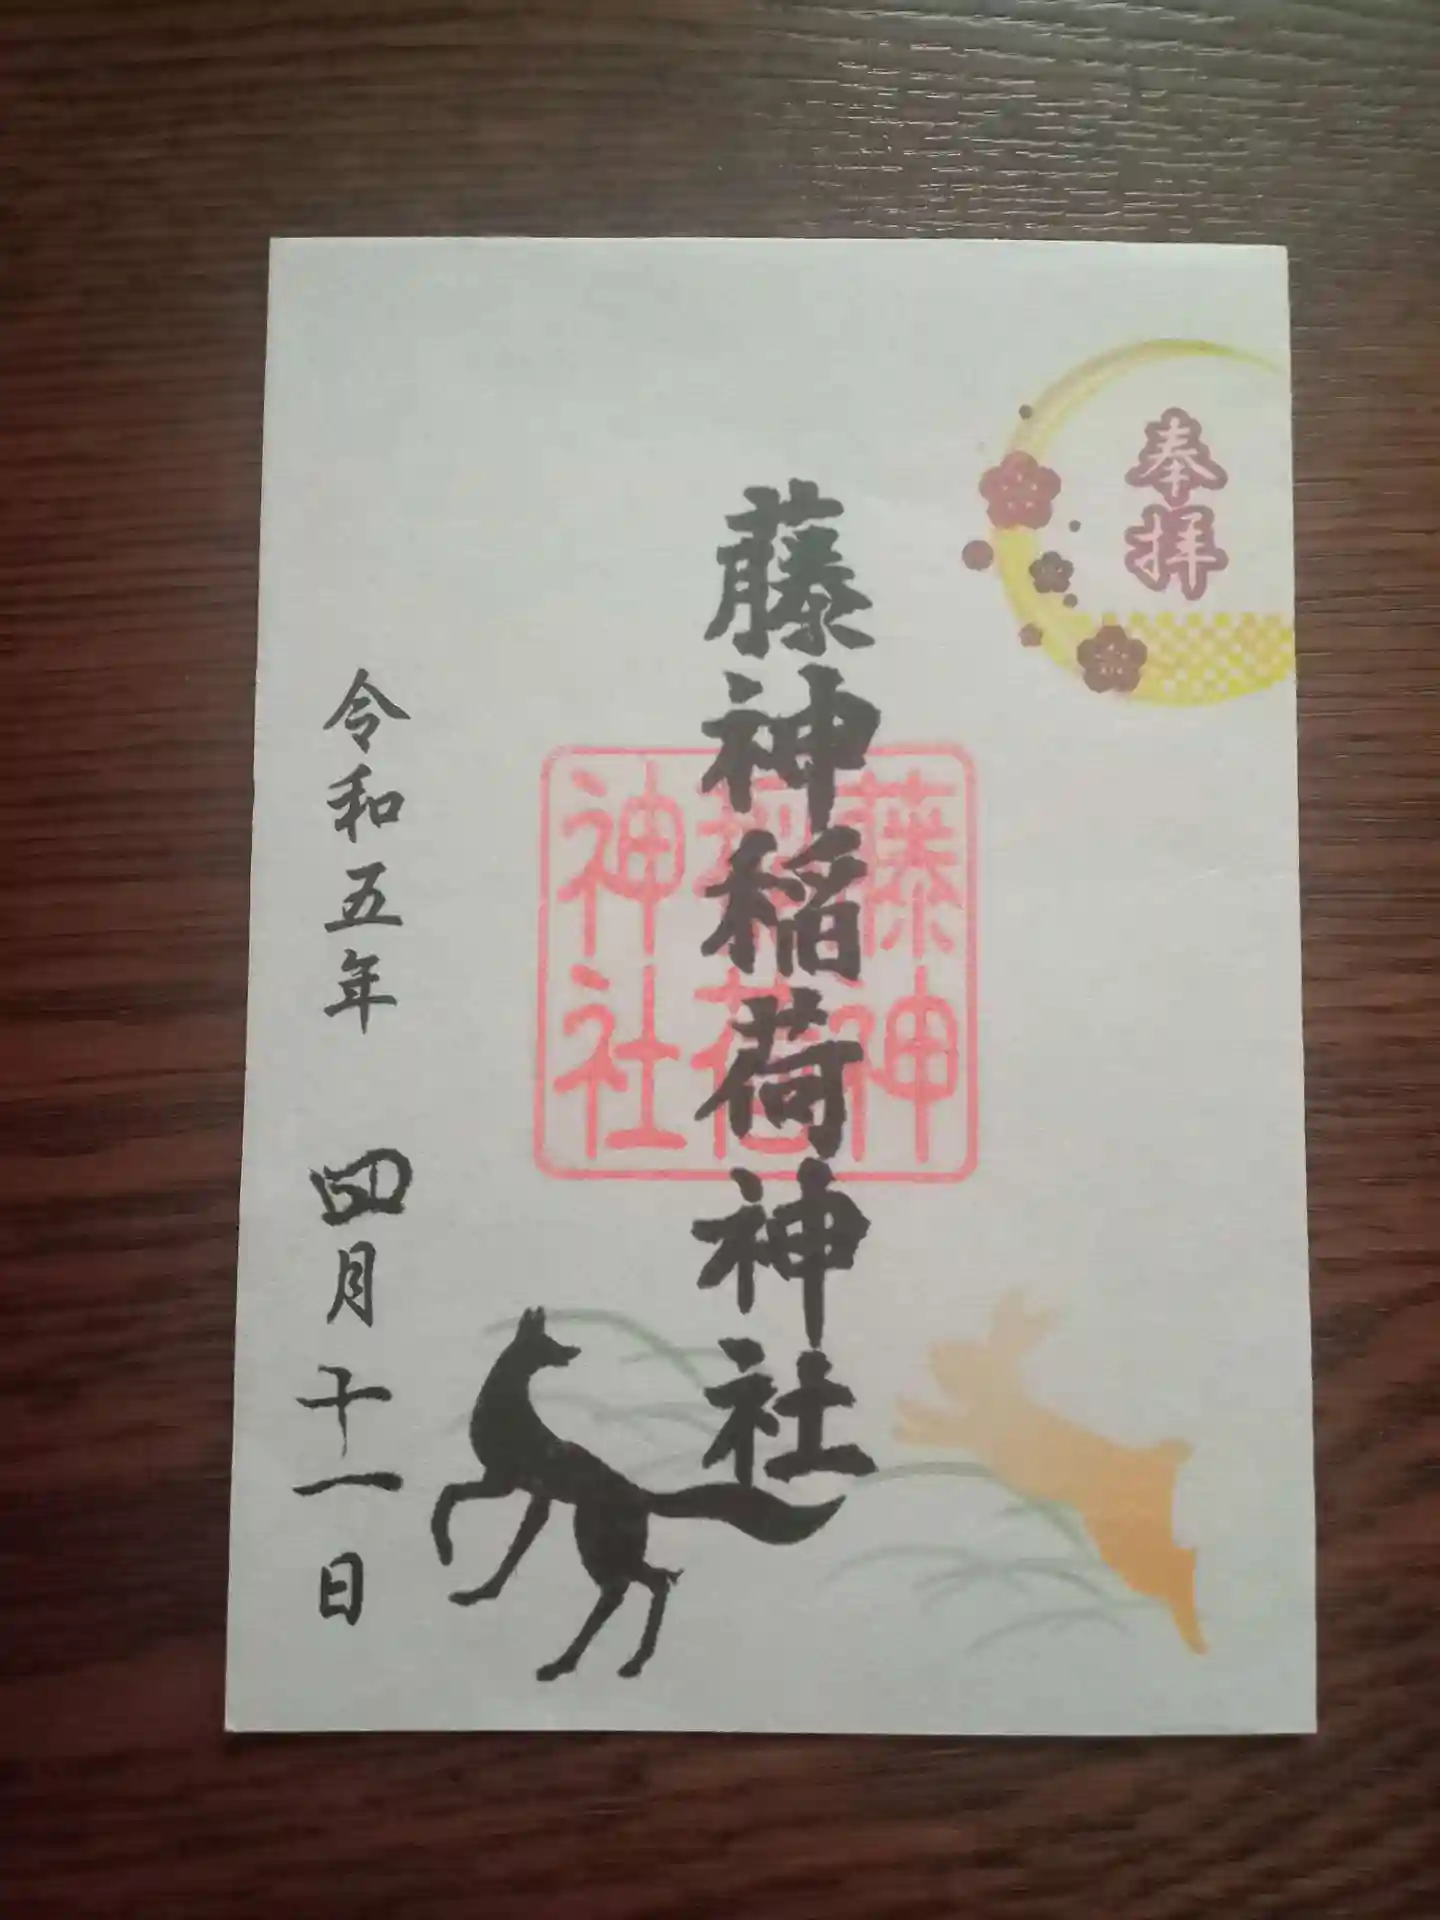 奉拝
藤神稲荷神社
藤神
稲荷
神社
令和五年 四月十一日